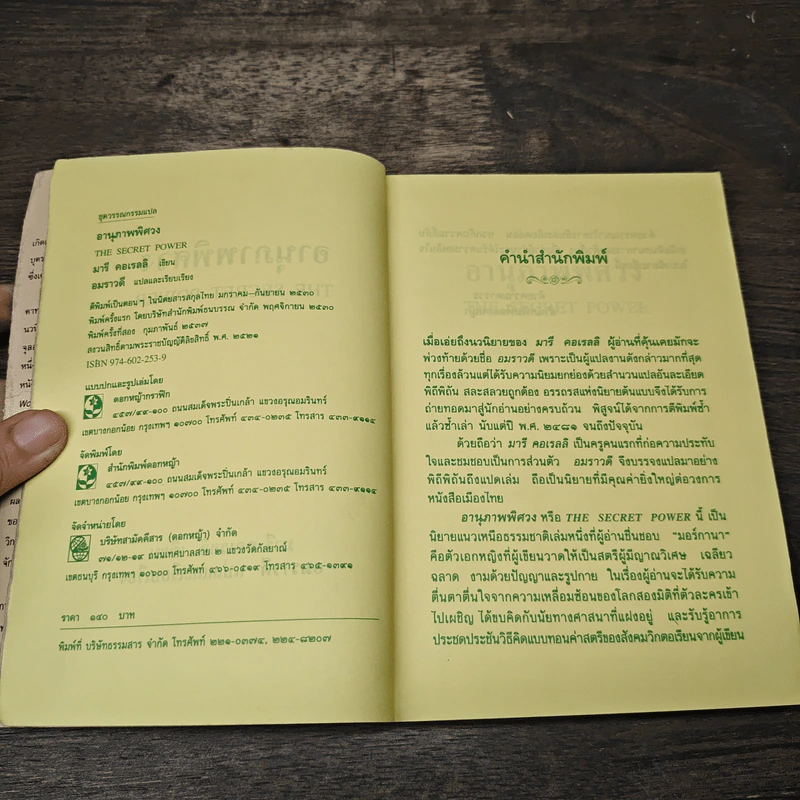 ชุดวรรณกรรมแปล
อานุภาพพิศวง
THE SECRET POWER
มารี คอเรลลิ เขียน
อมราวดี แปลและเรียบเรียง
ตีพิมพ์เป็นตอนๆ ในนิตยสารสกุลไทย มกราคม–กันยายน ๒๕๓๐
พิมพ์ครั้งแรก โดยบริษัทสำนักพิมพ์อนบรรณ จำกัด พฤศจิกายน ๒๕๓๐
พิมพ์ครั้งที่สอง กุมภาพันธ์ ๒๕๓๗
สงวนสิทธิ์ตามพระราชบัญญัติลิขสิทธิ์ พ.ศ. ๒๕๒๑
ISBN 974-602-253-9
แบบปกและรูปเล่มโดย
ดอกหญ้ากราฟิก
๔๕๗/๙๙-๑๐๐ ถนนสมเด็จพระปิ่นเกล้า แขวงอรุณอมรินทร์
เขตบางกอกน้อย กรุงเทพฯ ๑๐๗๐๐ โทรศัพท์ ๔๓๔-๐๒๓๕ โทรสาร ๔๓๓-๙๑๑๔
จัดพิมพ์โดย
สำนักพิมพ์ดอกหญ้า
๔๕๗/๙๙-๑๐๐ ถนนสมเด็จพระปิ่นเกล้า แขวงอรุณอมรินทร์
เขตบางกอกน้อย กรุงเทพฯ ๑๐๗๐๐ โทรศัพท์ ๔๓๔-๐๒๓๕ โทรสาร ๔๓๓-๙๑๑๔
จัดจำหน่ายโดย
บริษัทสามัคคีสาร (ดอกหญ้า) จำกัด
๗๑/๑๒-๑๙ ถนนเทศบาลสาย ๒ แขวงวัดกัลยาณ์
เขตธนบุรี กรุงเทพฯ ๑๐๖๐๐ โทรศัพท์ ๔๖๖-๐๕๑๙ โทรสาร ๔๖๕-๑๓๙๑
ราคา ๑๔๐ บาท
พิมพ์ที่ บริษัทธรรมสาร จำกัด โทรศัพท์ ๒๒๑-๐๓๗๔, ๒๒๔-๘๒๐๗
คำนำสำนักพิมพ์
เมื่อเอ่ยถึงนวนิยายของ มารี คอเรลลิ ผู้อ่านที่คุ้นเคยมักจะ
พ่วงท้ายด้วยชื่อ อมราวดี เพราะเป็นผู้แปลงานดังกล่าวมากที่สุด
ทุกเรื่องล้วนแต่ได้รับความนิยมยกย่องด้วยสำนวนแปลอันละเอียด
พิถีพิถัน สละสลวยถูกต้อง อรรถรสแห่งนิยายต้นแบบจึงได้รับการ
ถ่ายทอดมาสู่นักอ่านอย่างครบถ้วน พิสูจน์ได้จากการตีพิมพ์ซ้ำ
แล้วซ้ำเล่า นับแต่ปี พ.ศ. ๒๔๘๑ จนถึงปัจจุบัน
ด้วยถือว่า มารี คอเรลลิ เป็นครูคนแรกที่ก่อความประทับ
ใจและชมชอบเป็นการส่วนตัว อมราวดี จึงบรรจงแปลมาอย่าง
พิถีพิถันถึงแปดเล่ม ถือเป็นนิยายที่มีคุณค่ายิ่งใหญ่ต่อวงการ
หนังสือเมืองไทย
อานุภาพพิศวง หรือ THE SECRET POWER นี้ เป็น
นิยายแนวเหนือธรรมชาติเล่มหนึ่งที่ผู้อ่านชื่นชอบ “มอร์กานา”
คือตัวเอกหญิงที่ผู้เขียนวาดให้เป็นสตรีผู้มีญาณวิเศษ เฉลียว
ฉลาด งามด้วยปัญญาและรูปกาย ในเรื่องผู้อ่านจะได้รับความ
ตื่นตาตื่นใจจากความเหลื่อมซ้อนของโลกสองมิติที่ตัวละครเข้า
ไปเผชิญ ได้ขบคิดกับนัยทางศาสนาที่แฝงอยู่ และรับรู้อาการ
ประชดประชันวิธีคิดแบบทอนค่าสตรีของสังคมวิกตอเรียนจากผู้เขียน